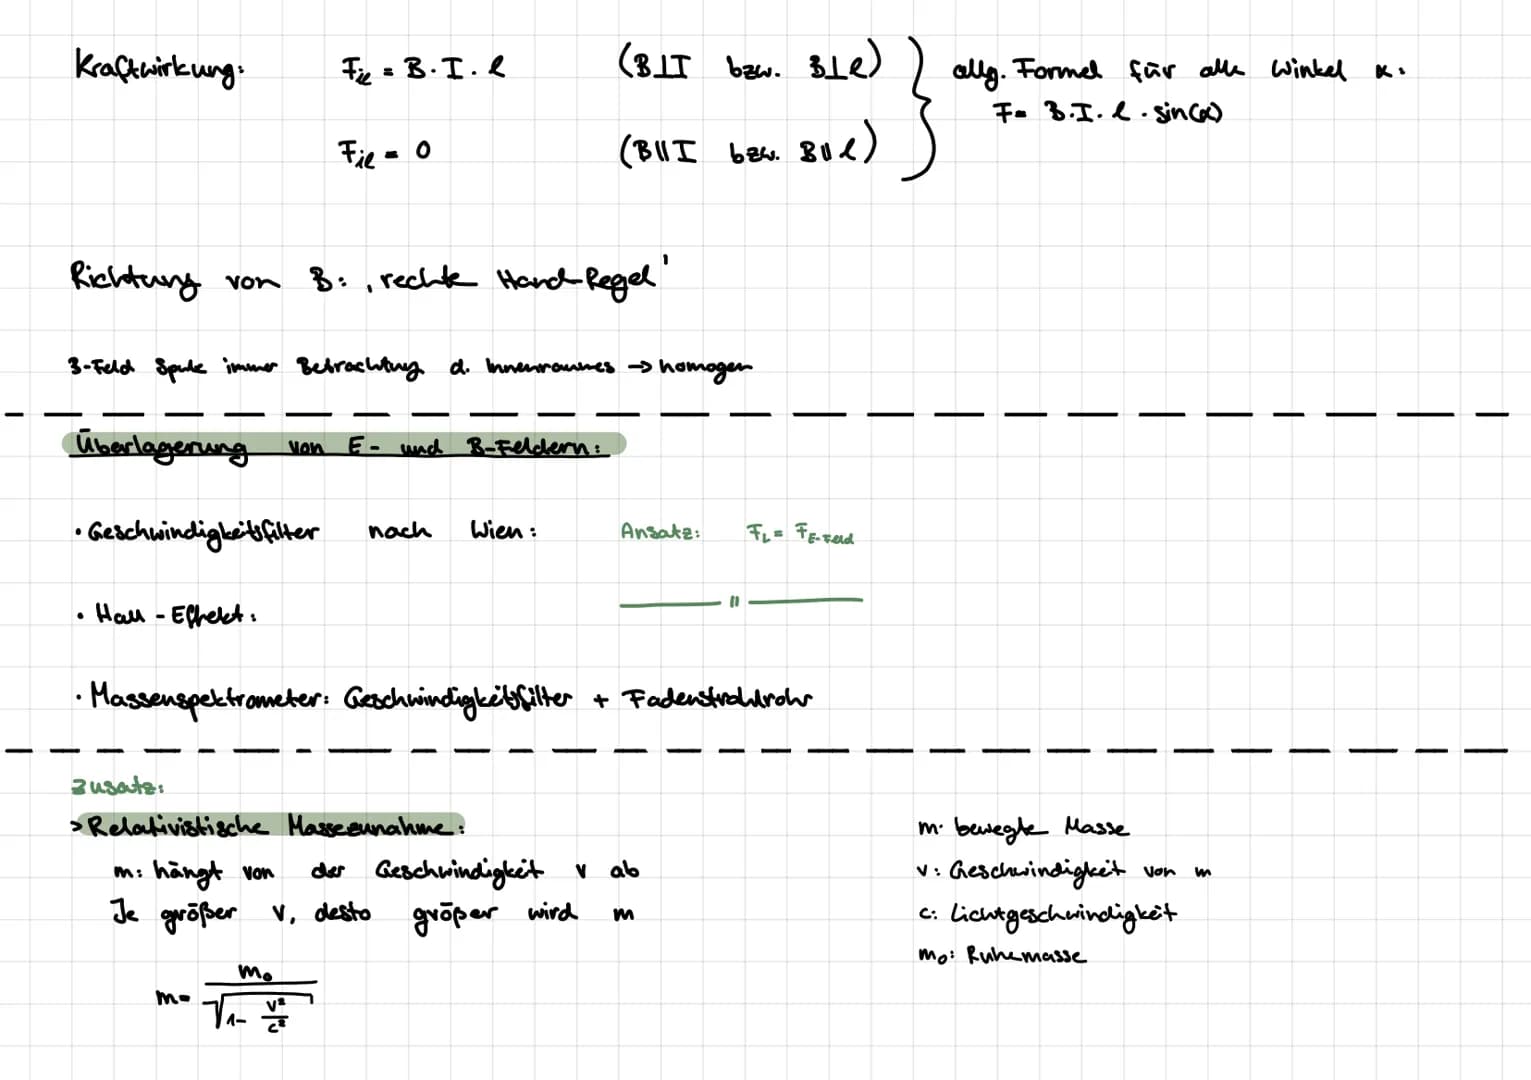 Kraftwirkung: F_il = B · I · l (B⊥I bzw. B⊥l) } allg. Formel für alle Winkel α:
F = B · I · l · sin(α)
F_il = 0 (B∥I bzw. B∥l)
Richtung von B: ‚rechte Hand-Regel'
B-Feld Spule immer Betrachtung d. Innenraumes → homogen
Überlagerung von E- und B-Feldern:
• Geschwindigkeitsfilter nach Wien: Ansatz: F_L = F_E-Feld
• Hall-Effekt: —— " ——
• Massenspektrometer: Geschwindigkeitsfilter + Fadenstrahlrohr
Zusatz:
> Relativistische Massezunahme:
m: hängt von der Geschwindigkeit v ab
Je größer v, desto größer wird m
m = m₀ / √(1 - v²/c²)
m: bewegte Masse
v: Geschwindigkeit von m
c: Lichtgeschwindigkeit
m₀: Ruhemasse